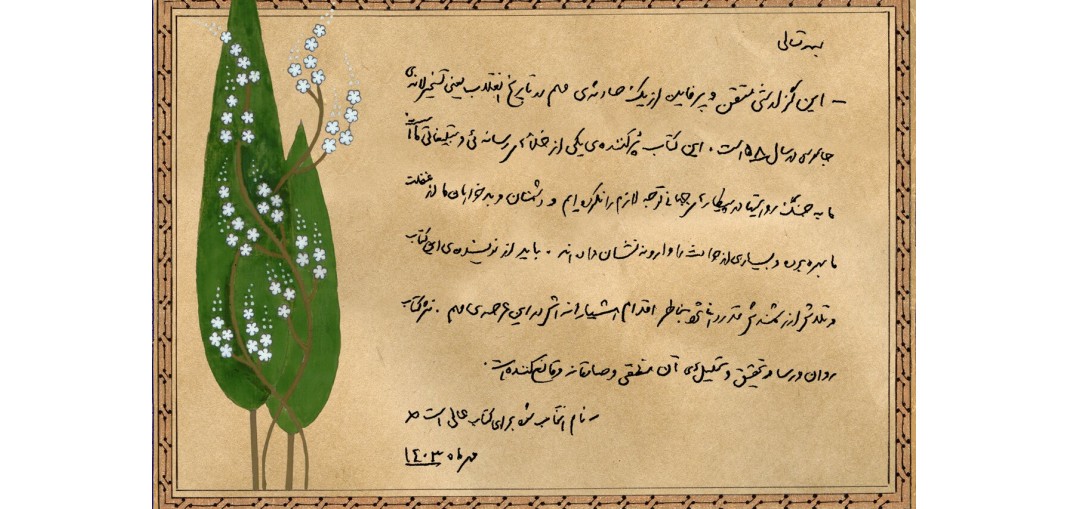 بسمه تعالی
- این گزارشی متقن و پرفایده از یک حادثه‌ی مهم در تاریخ انقلاب یعنی تسخیر لانه‌ی
جاسوسی در سال ۵۸ است. این کتاب پُرکننده‌ی یکی از خلأهای رسانه‌ئی و تبلیغاتی ما است
ما به جنگ روایتها در پیکارهای جهانی توجه لازم را نکرده‌ایم و دشمنان و بدخواهان ما از غفلت
ما بهره برده و بسیاری از حوادث را وارونه نشان داده‌اند. باید از نویسنده‌ی این کتاب
و تلاش ارزشمندش قدردانی شود بخاطر اقدام هشیارانه‌اش در این عرصه‌ی مهم. نثر کتاب
روان و رسا و تحقیق و تحلیلهای آن منطقی و صادقانه و قانع‌کننده است.
- نام انتخاب شده برای کتاب عالی است
مهر ماه ۱۴۰۳